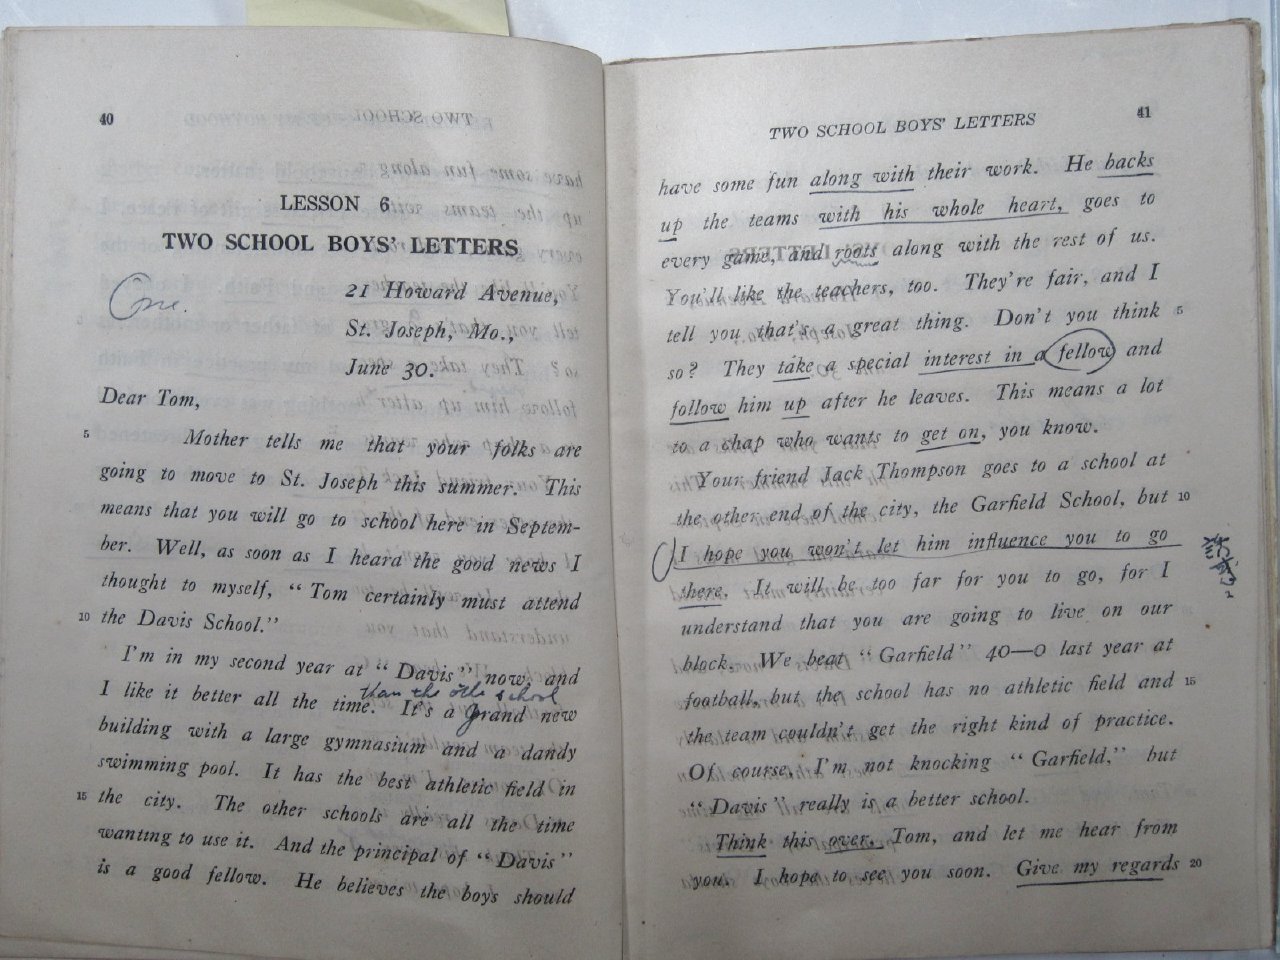 40
LESSON 6
TWO SCHOOL BOYS' LETTERS
21 Howard Avenue,
St. Joseph, Mo.,
June 30.
Dear Tom,
5 Mother tells me that your folks are
going to move to St. Joseph this summer. This
means that you will go to school here in Septem-
ber. Well, as soon as I heard the good news I
thought to myself, "Tom certainly must attend
10 the Davis School."
I'm in my second year at "Davis" now, and
than the othe school
I like it better all the time. It's a grand new
building with a large gymnasium and a dandy
swimming pool. It has the best athletic field in
15 the city. The other schools are all the time
wanting to use it. And the principal of "Davis"
is a good fellow. He believes the boys should
TWO SCHOOL BOYS' LETTERS 41
have some fun along with their work. He backs
up the teams with his whole heart, goes to
every game, and roots along with the rest of us.
You'll like the teachers, too. They're fair, and I
tell you that's a great thing. Don't you think 5
so? They take a special interest in a fellow and
follow him up after he leaves. This means a lot
to a chap who wants to get on, you know.
Your friend Jack Thompson goes to a school at
the other end of the city, the Garfield School, but 10
I hope you won't let him influence you to go
there. It will be too far for you to go, for I
understand that you are going to live on our
block. We beat "Garfield" 40—0 last year at
football, but the school has no athletic field and 15
the team couldn't get the right kind of practice.
Of course, I'm not knocking "Garfield," but
"Davis" really is a better school.
Think this over, Tom, and let me hear from
you. I hope to see you soon. Give my regards 20